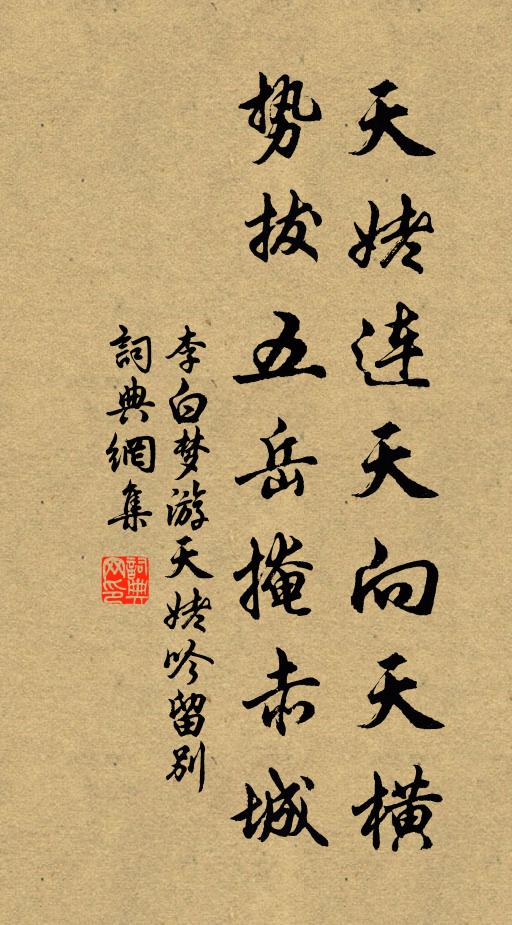 天姥连天向天横
势拔五岳掩赤城
李白梦游天姥吟留别
詞典網集
詞典网印